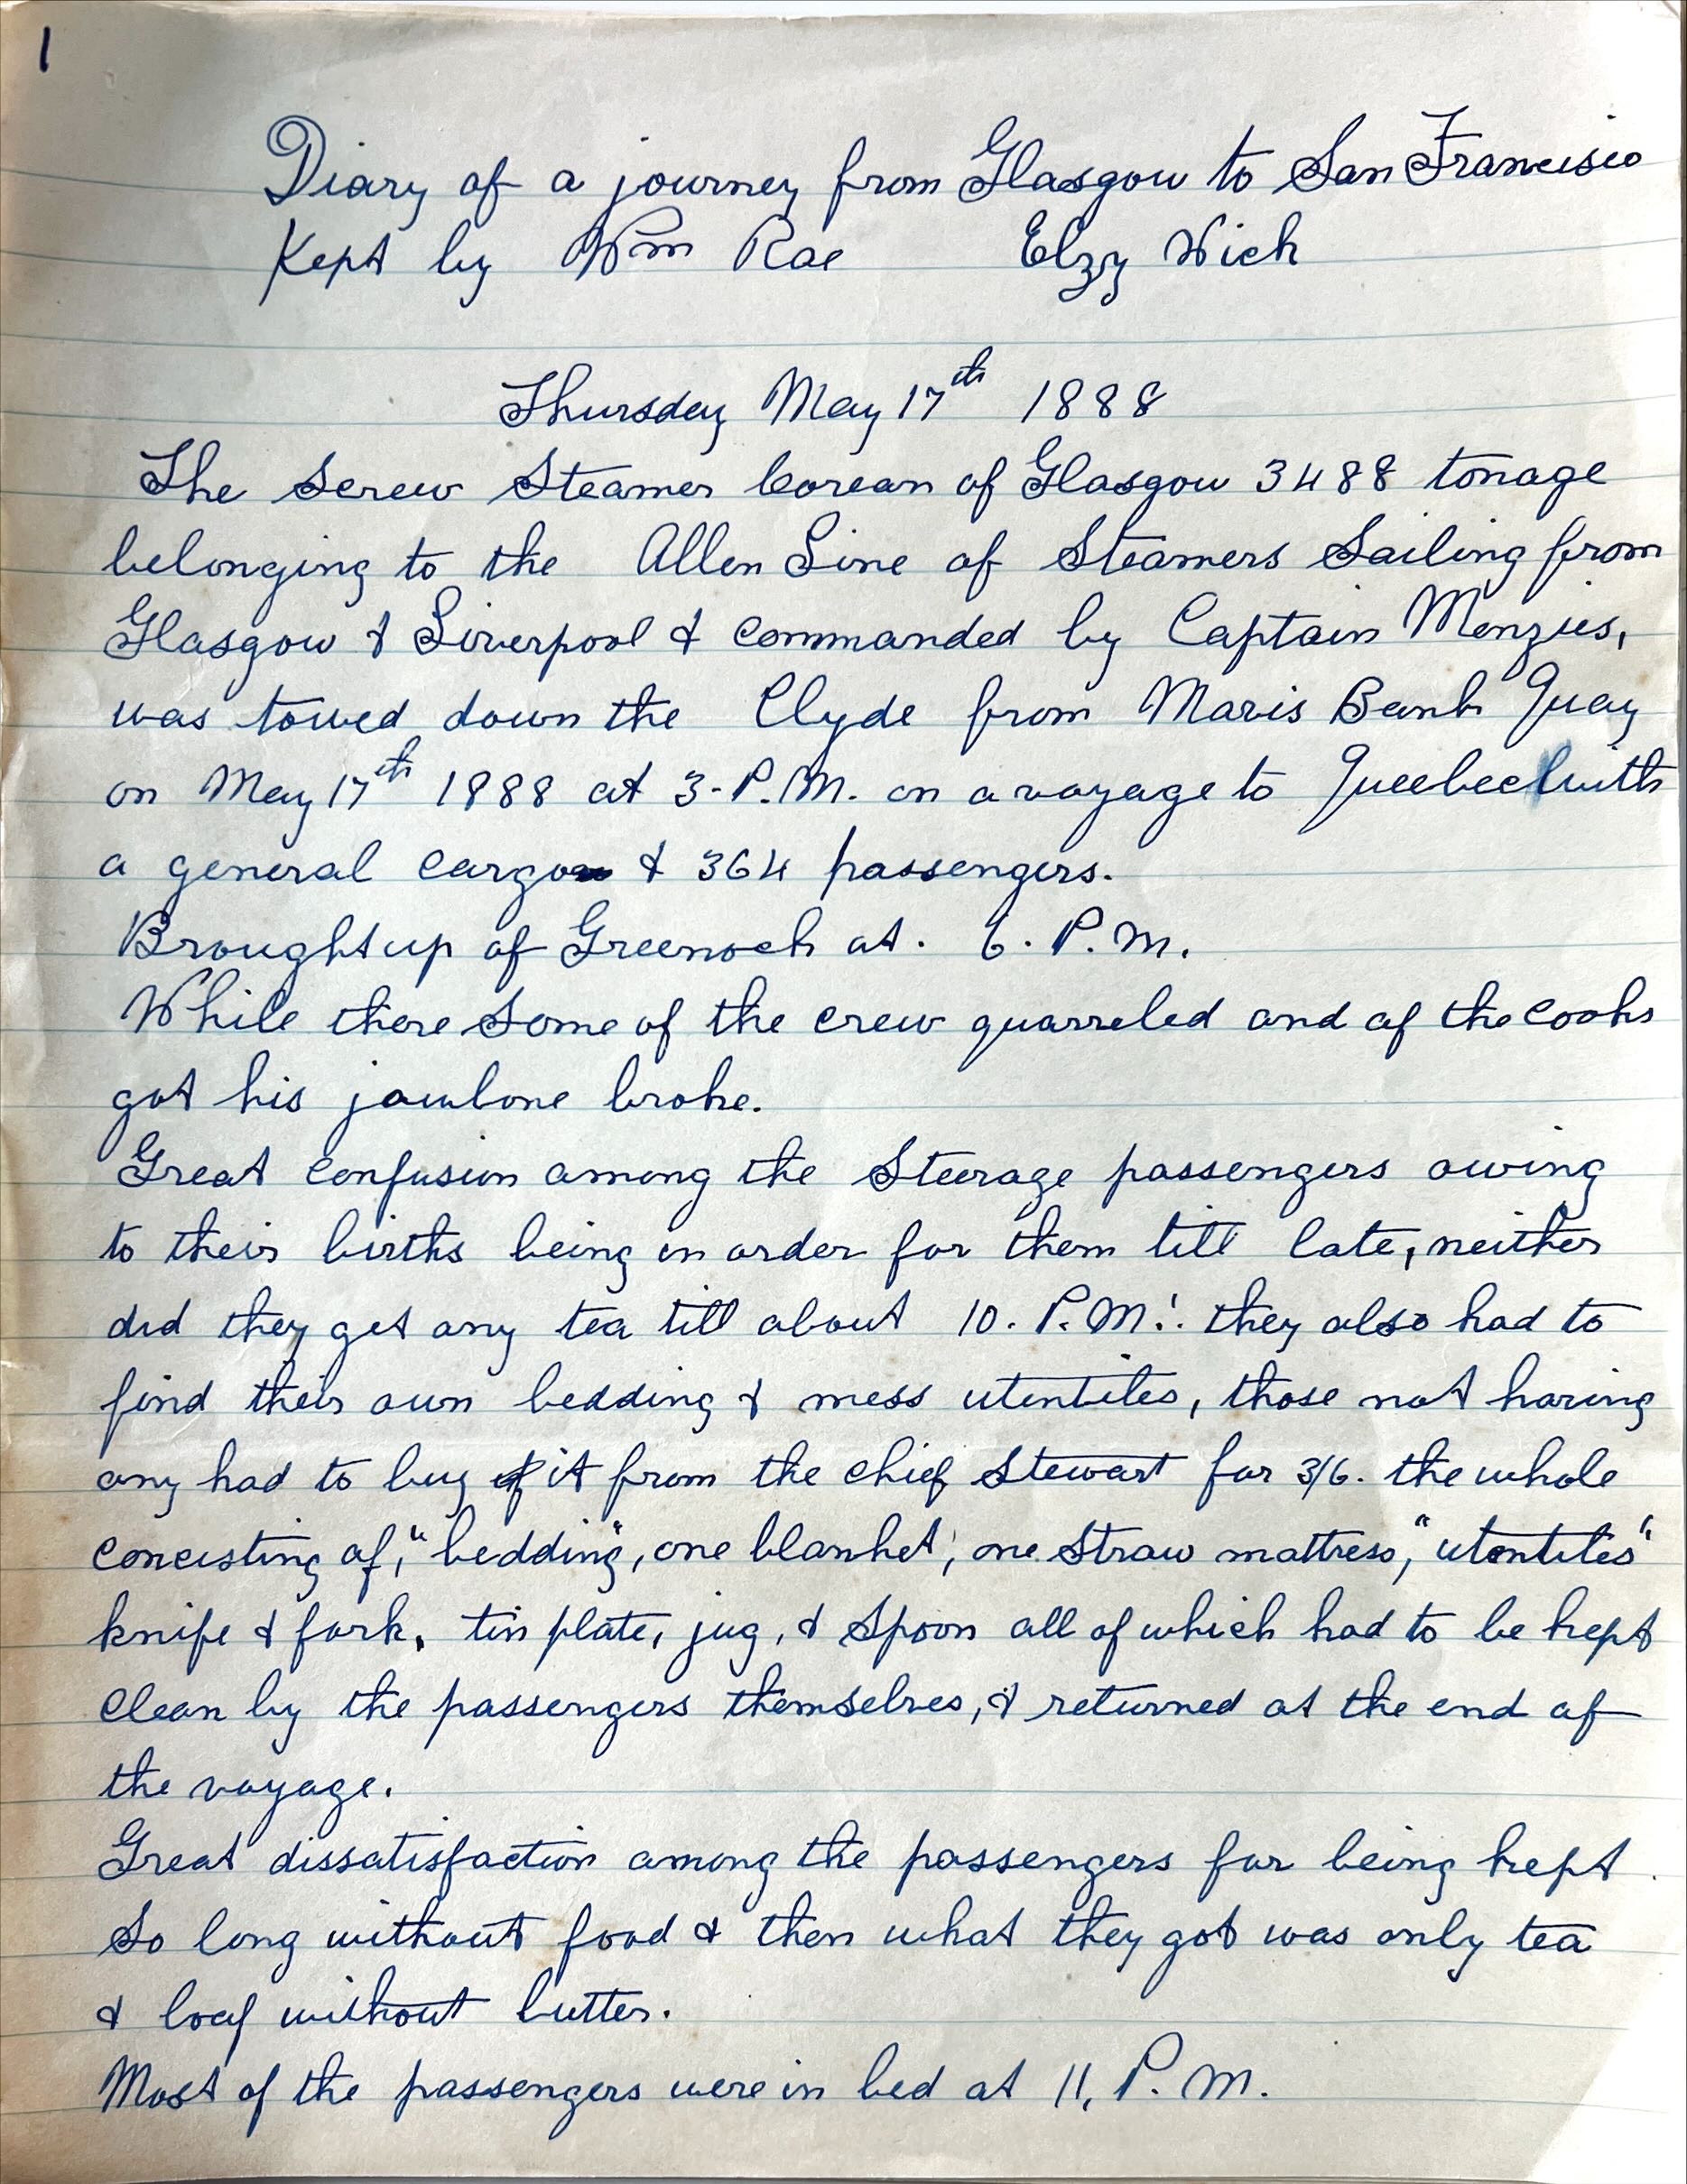 1
Diary of a journey from Glasgow to San Francisco
Kept by Wm Rae Elzy Wick
Thursday May 17th 1888
The Screw Steamer Corean of Glasgow 3488 tonage
belonging to the Allen Line of Steamers Sailing from
Glasgow & Liverpool & Commanded by Captain Menzies,
was towed down the Clyde from Mavis Bank Quay
on May 17th 1888 at 3-P.M. on a voyage to Queebec with
a general cargo & 364 passengers.
Brought up of Greenock at. 6. P.M.
While there Some of the crew quarreled and of the cooks
got his jawbone broke.
Great confusion among the Steerage passengers owing
to their births being in order for them till late, neither
did they get any tea till about 10. P.M. they also had to
find their own bedding & mess utentiles, those not having
any had to buy it from the chief Stewart for 3/6. the whole
concisting of, "bedding", one blanket, one straw mattress, "utentiles"
knife & fork, tin plate, jug, & Spoon all of which had to be kept
clean by the passengers themselves, & returned at the end of
the voyage.
Great dissatisfaction among the passengers for being kept
So long without food & then what they got was only tea
& loaf without butter.
Most of the passengers were in bed at 11, P.M.